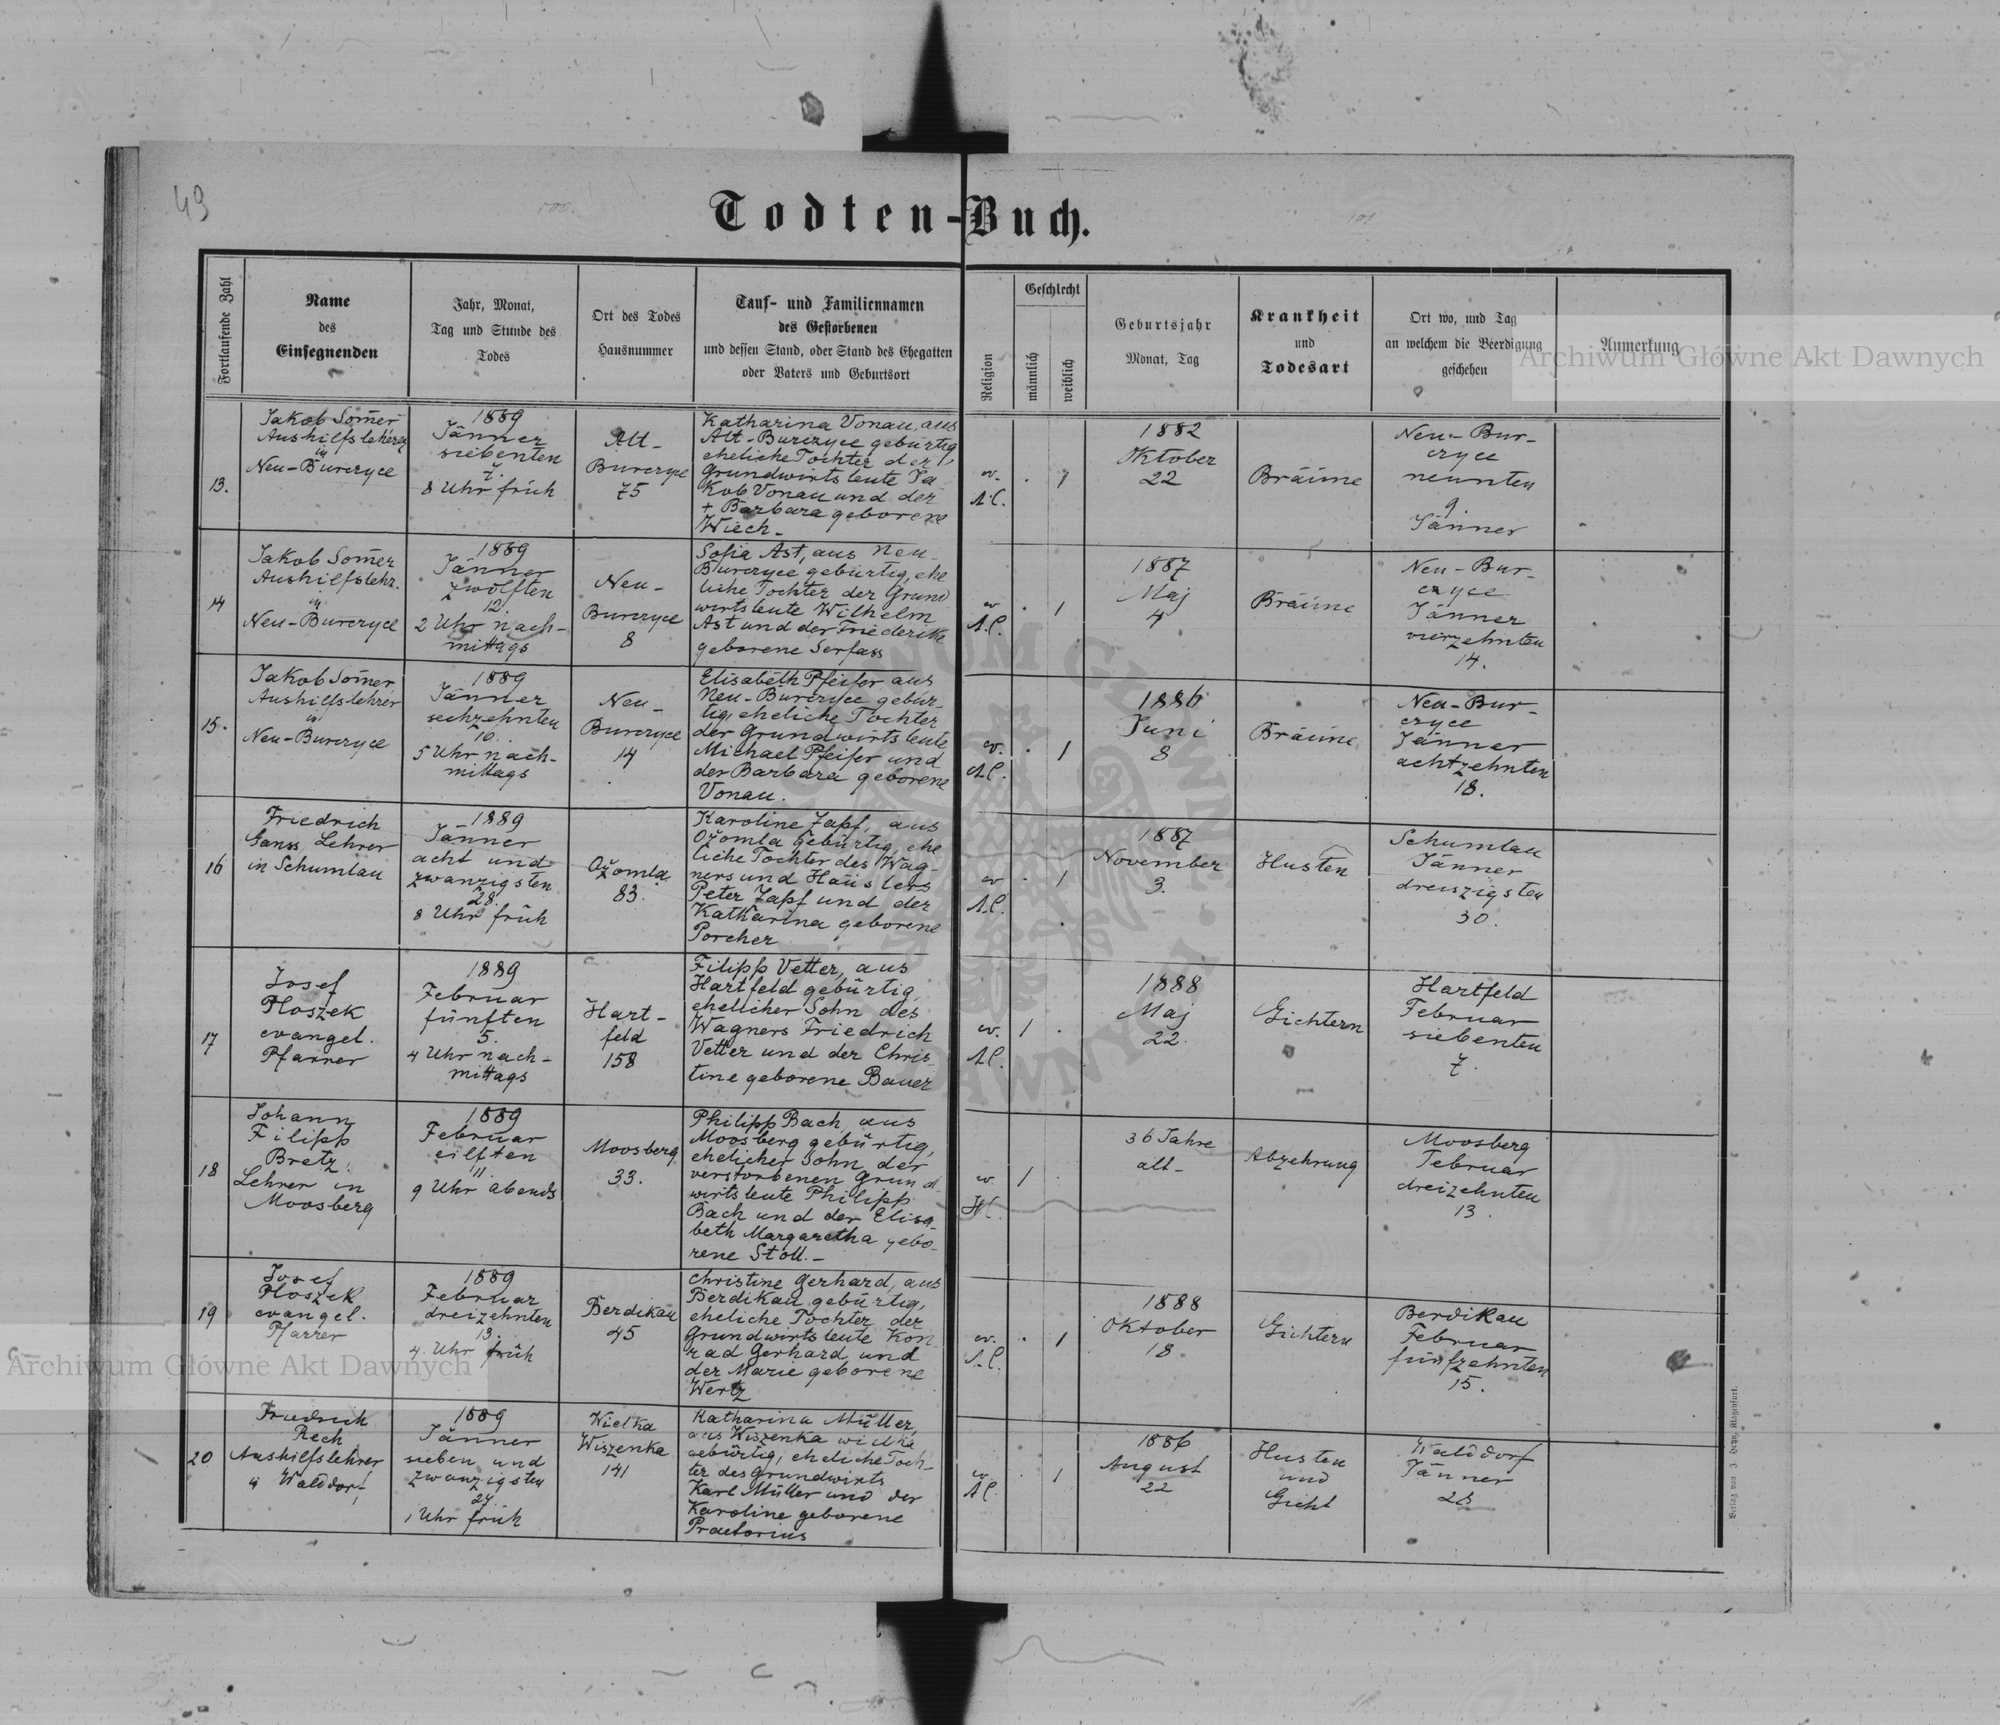 49
Todten-Buch.
Fortlaufende Zahl
Name
des
Einsegnenden
Jahr, Monat,
Tag und Stunde des
Todes
Ort des Todes
Hausnummer
Tauf- und Familiennamen
des Gestorbenen
und dessen Stand, oder Stand des Ehegatten
oder Vaters und Geburtsort
Religion
Geschlecht
männlich
weiblich
Geburtsjahr
Monat, Tag
Krankheit
und
Todesart
Ort wo, und Tag
an welchem die Beerdigung
geschehen
Anmerkung
Archiwum Główne Akt Dawnych
13.
Jakob Som̄er
Aushilfslehrer
in
Neu-Burczyce
1889
Jänner
siebenten
7.
8 Uhr früh
Alt-
Burczyce
75
Katharina Vonau, aus
Alt-Burczyce gebürtig,
eheliche Tochter der
Grundwirtsleute Ja
kob Vonau und der
+ Barbara geborene
Wiech.
ev.
A.C.
1
1882
Oktober
22
Bräune
Neu-Bur-
czyce
neunten
9.
Jänner
14
Jakob Som̄er
Aushilfslehr.
in
Neu-Burczyce
1889
Jänner
zwölften
12.
2 Uhr nach-
mittags
Neu-
Burczyce
8
Sofia Ast, aus Neu-
Burczyce gebürtig, ehe
liche Tochter der Grund
wirtsleute Wilhelm
Ast und der Friederike
geborene Serfass
ev
A.C.
1
1887
Maj
4
Bräune
Neu-Bur-
czyce
Jänner
vierzehnten
14.
15.
Jakob Som̄er
Aushilfslehrer
in
Neu-Burczyce
1889
Jänner
sechzehnten
16.
5 Uhr nach-
mittags
Neu-
Burczyce
14
Elisabeth Pfeifer aus
Neu-Burczyce gebür-
tig, eheliche Tochter
der Grundwirtsleute
Michael Pfeifer und
der Barbara geborene
Vonau.
ev.
A.C.
1
1886
Juni
8
Bräune
Neu-Bur-
czyce
Jänner
achtzehnten
18.
16
Friedrich
Ganss Lehrer
in Schumlau
1889
Jänner
acht und
zwanzigsten
28.
8 Uhr früh
Ożomla
83.
Karoline Zapf, aus
Ożomla gebürtig, ehe
liche Tochter des Wag-
ners und Häuslers
Peter Zapf und der
Katharina geborene
Porcher
ev
A.C.
1
1887
November
3.
Husten
Schumlau
Jänner
dreiszigsten
30.
17
Josef
Ploszek
evangel.
Pfarrer
1889
Februar
fünften
5.
4 Uhr nach-
mittags
Hart-
feld
158
Filipp Vetter, aus
Hartfeld gebürtig,
ehelicher Sohn des
Wagners Friedrich
Vetter und der Chris-
tine geborene Bauer
ev.
A.C.
1
1888
Maj
22.
Gichtern
Hartfeld
Februar
siebenten
7.
18
Johann
Filipp
Bretz.
Lehrer in
Moosberg
1889
Februar
eilften
11.
9 Uhr abends
Moosberg
33.
Philipp Bach aus
Moosberg gebürtig,
ehelicher Sohn der
verstorbenen Grund-
wirtsleute Philipp
Bach und der Elisa-
beth Margaretha gebo-
rene Stoll.-
ev.
H.C.
1
36 Jahre
alt-
Abzehrung
Moosberg
Februar
dreizehnten
13.
19
Josef
Ploszek
evangel.
Pfarrer
1889
Februar
dreizehnten
13.
4. Uhr früh
Berdikau
45
Christine Gerhard, aus
Berdikau gebürtig,
eheliche Tochter der
Grundwirtsleute Kon
rad Gerhard und
der Marie geborene
Wertz
ev.
A.C.
1
1888
Oktober
18.
Gichtern
Berdikau
Februar
fünfzehnten
15.
20
Friedrich
Rech
Aushilfslehrer
in Walddorf
1889
Jänner
sieben und
zwanzigsten
27.
1 Uhr früh
Wielka
Wiszenka
141
Katharina Müller,
aus Wiszenka wielka
gebürtig, eheliche Toch-
ter des Grundwirts
Karl Müller und der
Karoline geborene
Praetorius
ev
A.C.
1
1886
August
22
Husten
und
Gicht
Walddorf
Jänner
28
Archiwum Główne Akt Dawnych